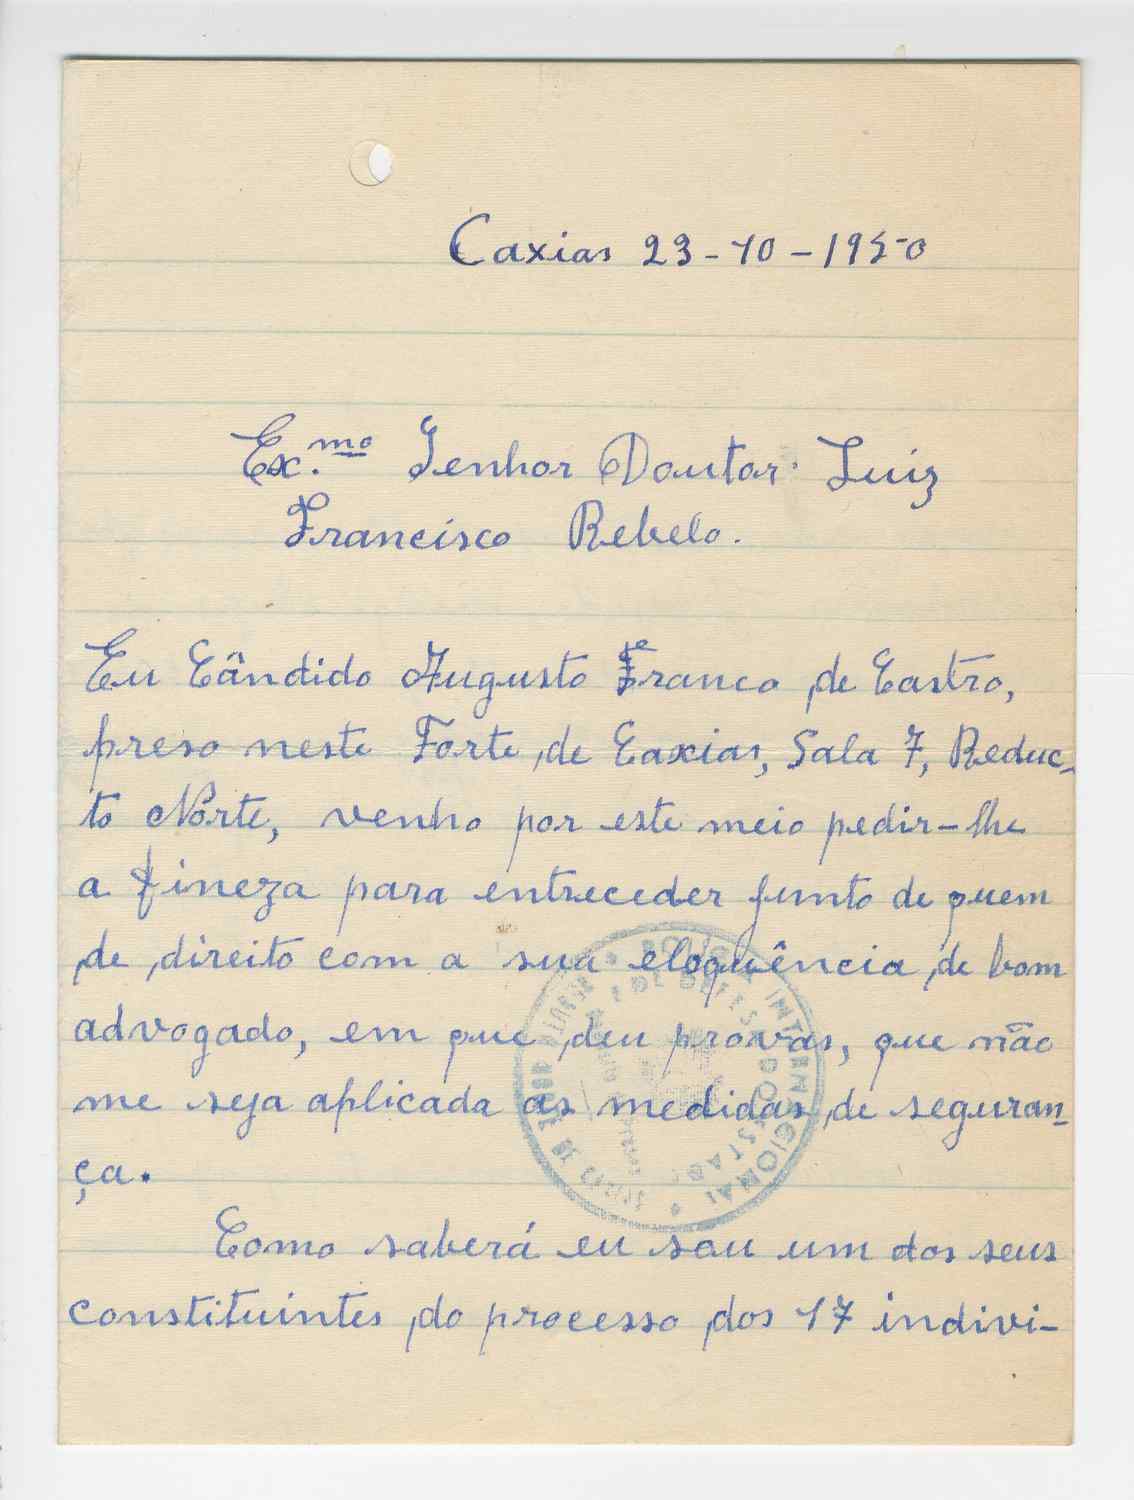 Caxias 23-10-1950
Ex.mo Senhor Doutor Luiz
Francisco Rebelo.
Eu Cândido Augusto Franco de Castro,
preso neste Forte de Caxias, Sala 7, Reduc-
to Norte, venho por este meio pedir-lhe
a fineza para entreceder junto de quem
de direito com a sua eloquência de bom
advogado, em que deu provas, que não
me seja aplicada as medidas de seguran-
ça.
Como saberá eu sou um dos seus
constituintes do processo dos 17 indiví-
POLICIA INTERNACIONAL
E DE DEFESA DO ESTADO